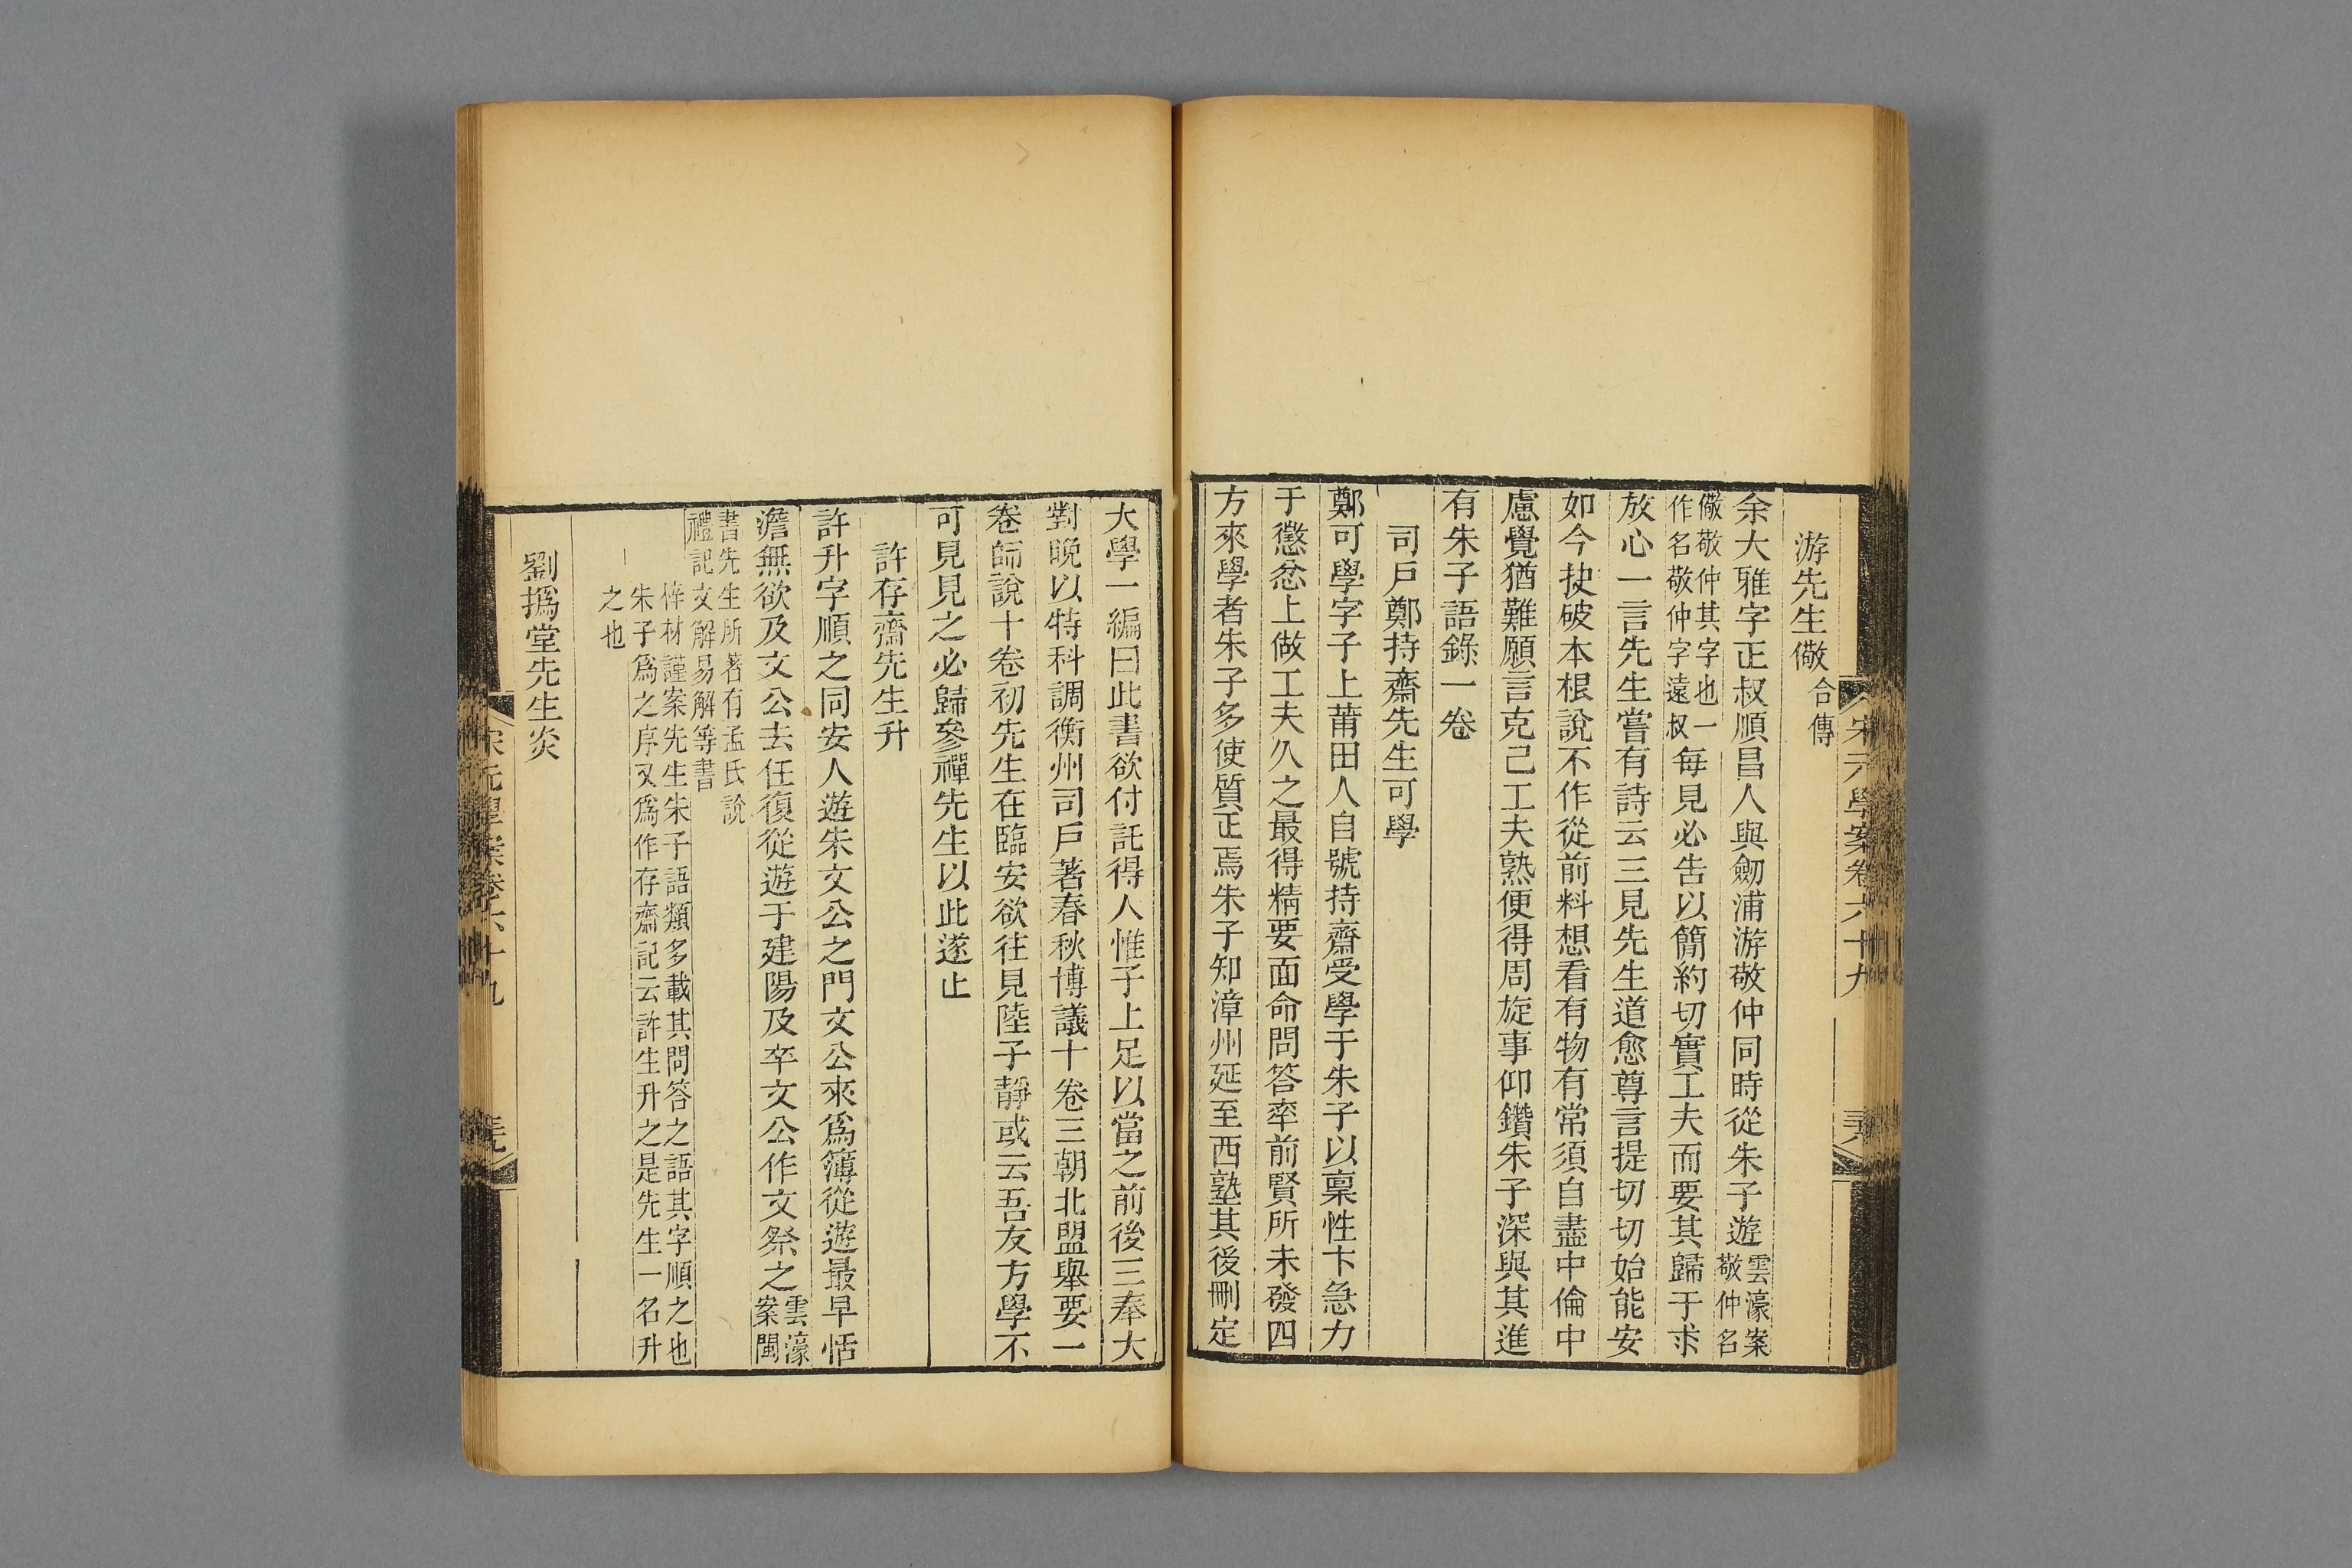 游先生儆合傳
余大雅字正叔順昌人與劒浦游敬仲同時從朱子遊雲濠案敬仲名
儆敬仲其字也一作名敬仲字遠叔每見必告以簡約切實工夫而要其歸于求
放心一言先生嘗有詩云三見先生道愈尊言提切切始能安
如今抉破本根說不作從前料想看有物有常須自盡中倫中
慮覺猶難願言克己工夫熟便得周旋事仰鑽朱子深與其進
有朱子語錄一卷
司戶鄭持齋先生可學
鄭可學字子上莆田人自號持齋受學于朱子以稟性卞急力
于懲忿上做工夫久之最得精要面命問答率前賢所未發四
方來學者朱子多使質正焉朱子知漳州延至西塾其後刪定
宋元學案卷六十九
大學一編曰此書欲付託得人惟子上足以當之前後三奉大
對晚以特科調衡州司戶著春秋博議十卷三朝北盟舉要一
卷師說十卷初先生在臨安欲往見陸子靜或云吾友方學不
可見見之必歸參禪先生以此遂止
許存齋先生升
許升字順之同安人遊朱文公之門文公來爲簿從遊最早恬
澹無欲及文公去任復從遊于建陽及卒文公作文祭之雲濠案閩
書先生所著有孟氏說禮記文解易解等書
梓材謹案先生朱子語類多載其問答之語其字順之也
朱子爲之序又爲作存齋記云許生升之是先生一名升
之也
劉撝堂先生炎
宋元學案卷六十九